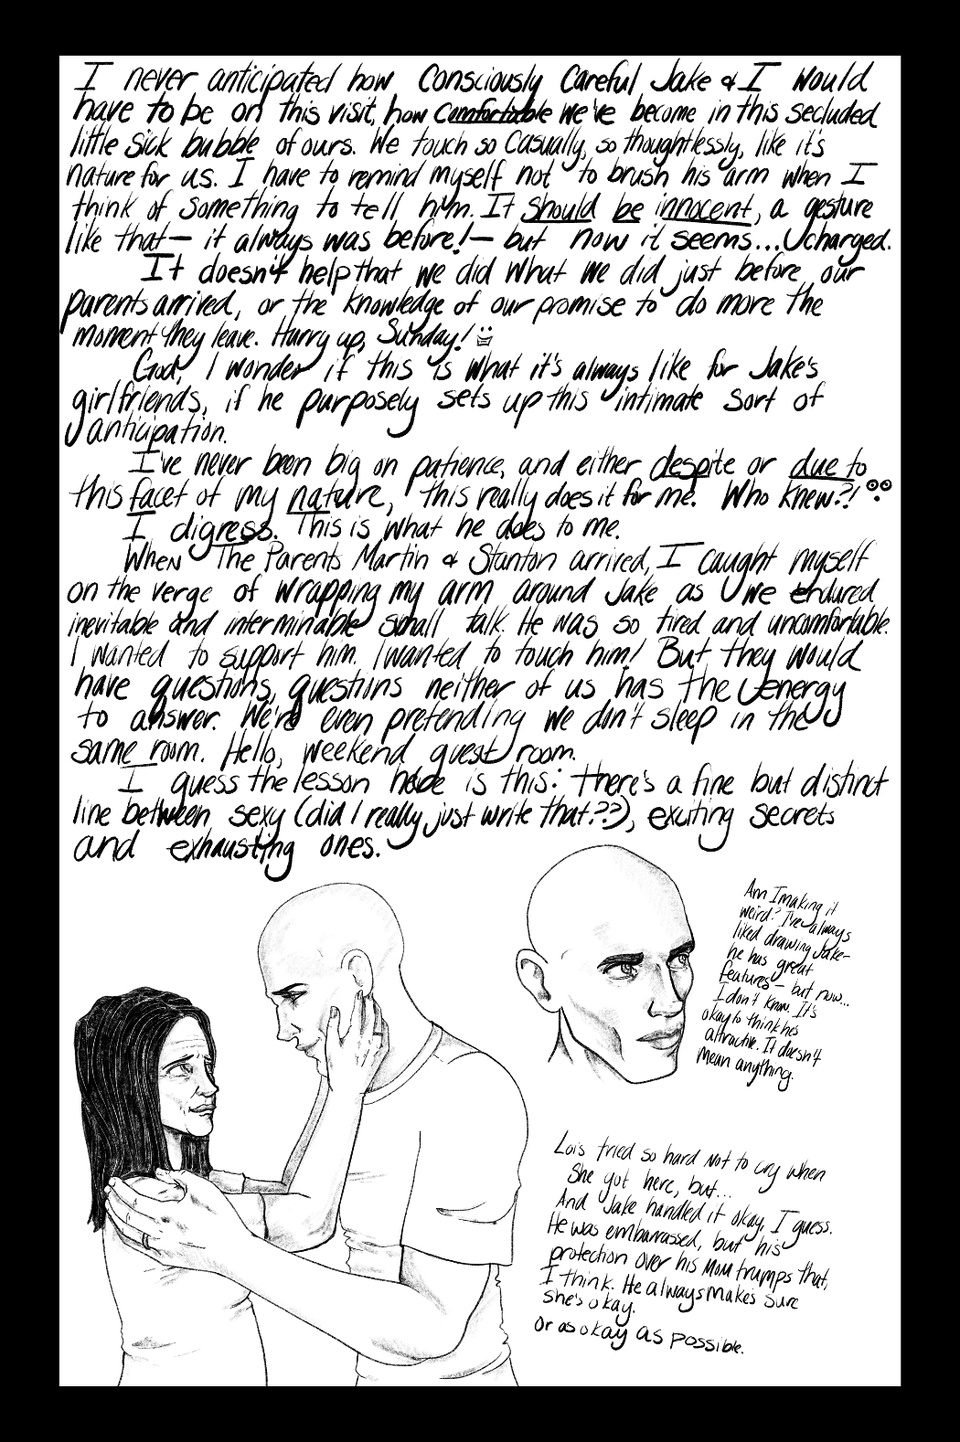 I never anticipated how consciously careful Jake & I would
have to be on this visit, how comfortable we've become in this secluded
little sick bubble of ours. We touch so casually, so thoughtlessly, like it's
nature for us. I have to remind myself not to brush his arm when I
think of something to tell him. It should be innocent, a gesture
like that — it always was before! — but now it seems... charged.
It doesn't help that we did what we did just before our
parents arrived, or the knowledge of our promise to do more the
moment they leave. Hurry up, Sunday!
God, I wonder if this is what it's always like for Jake's
girlfriends, if he purposely sets up this intimate sort of
anticipation.
I've never been big on patience, and either despite or due to
this facet of my nature, this really does it for me. Who knew?!
I digress. This is what he does to me.
When The Parents Martin & Stanton arrived, I caught myself
on the verge of wrapping my arm around Jake as we endured
inevitable and interminable small talk. He was so tired and uncomfortable.
I wanted to support him. I wanted to touch him! But they would
have questions, questions neither of us has the energy
to answer. We're even pretending we don't sleep in the
same room. Hello, weekend guest room.
I guess the lesson here is this: there's a fine but distinct
line between sexy (did I really just write that??), exciting secrets
and exhausting ones.
Am I making it
weird? I've always
liked drawing Jake-
he has great
features — but now...
I don't know. It's
okay to think he's
attractive. It doesn't
mean anything.
Lois tried so hard not to cry when
she got here, but...
And Jake handled it okay, I guess.
He was embarrassed, but his
protection over his Mom trumps that,
I think. He always makes sure
she's okay.
Or as okay as possible.